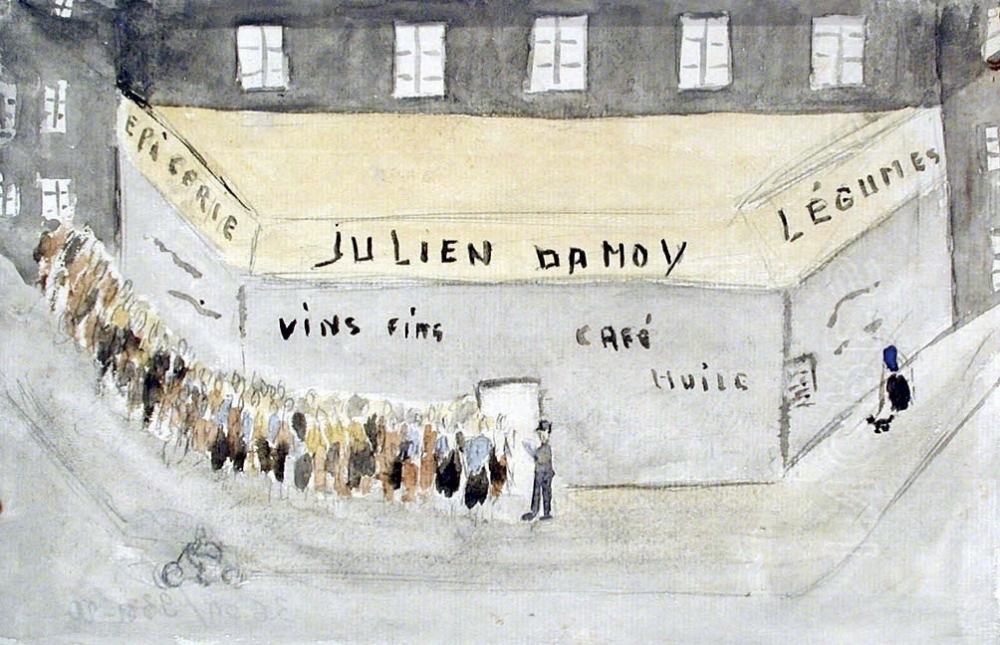 EPICERIE
LÉGUMES
JULIEN DAMOY
VINS FINS
CAFÉ
HUILE